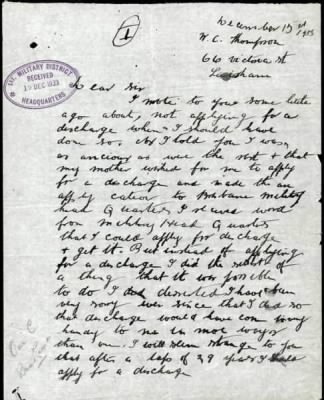 ①
December 15st 1933
W. C. Thompson
66 Victoria St
Lewisham
1st. MILITARY DISTRICT
RECEIVED
19 DEC 1933
HEADQUARTERS
Dear Sir
I wrote to you some little
ago about, not applying for a
discharge when I should have
done so. As I told you I was
as anxious as were the rest & that
my mother wished for me to apply
for a discharge and made the an
apply cation to Brisbane military
head Quarters I received word
from military Head Quarters
that I could apply for discharge
& get it. But instead of applying
for a discharge I did the silliest of
a thing that it was possible
to do I deserted I have been
very sorry ever since that I did so
the discharge would have con
handy to me in more ways
than one. I will seem strange to you
that after a laps of 29 years I should
apply for a discharge